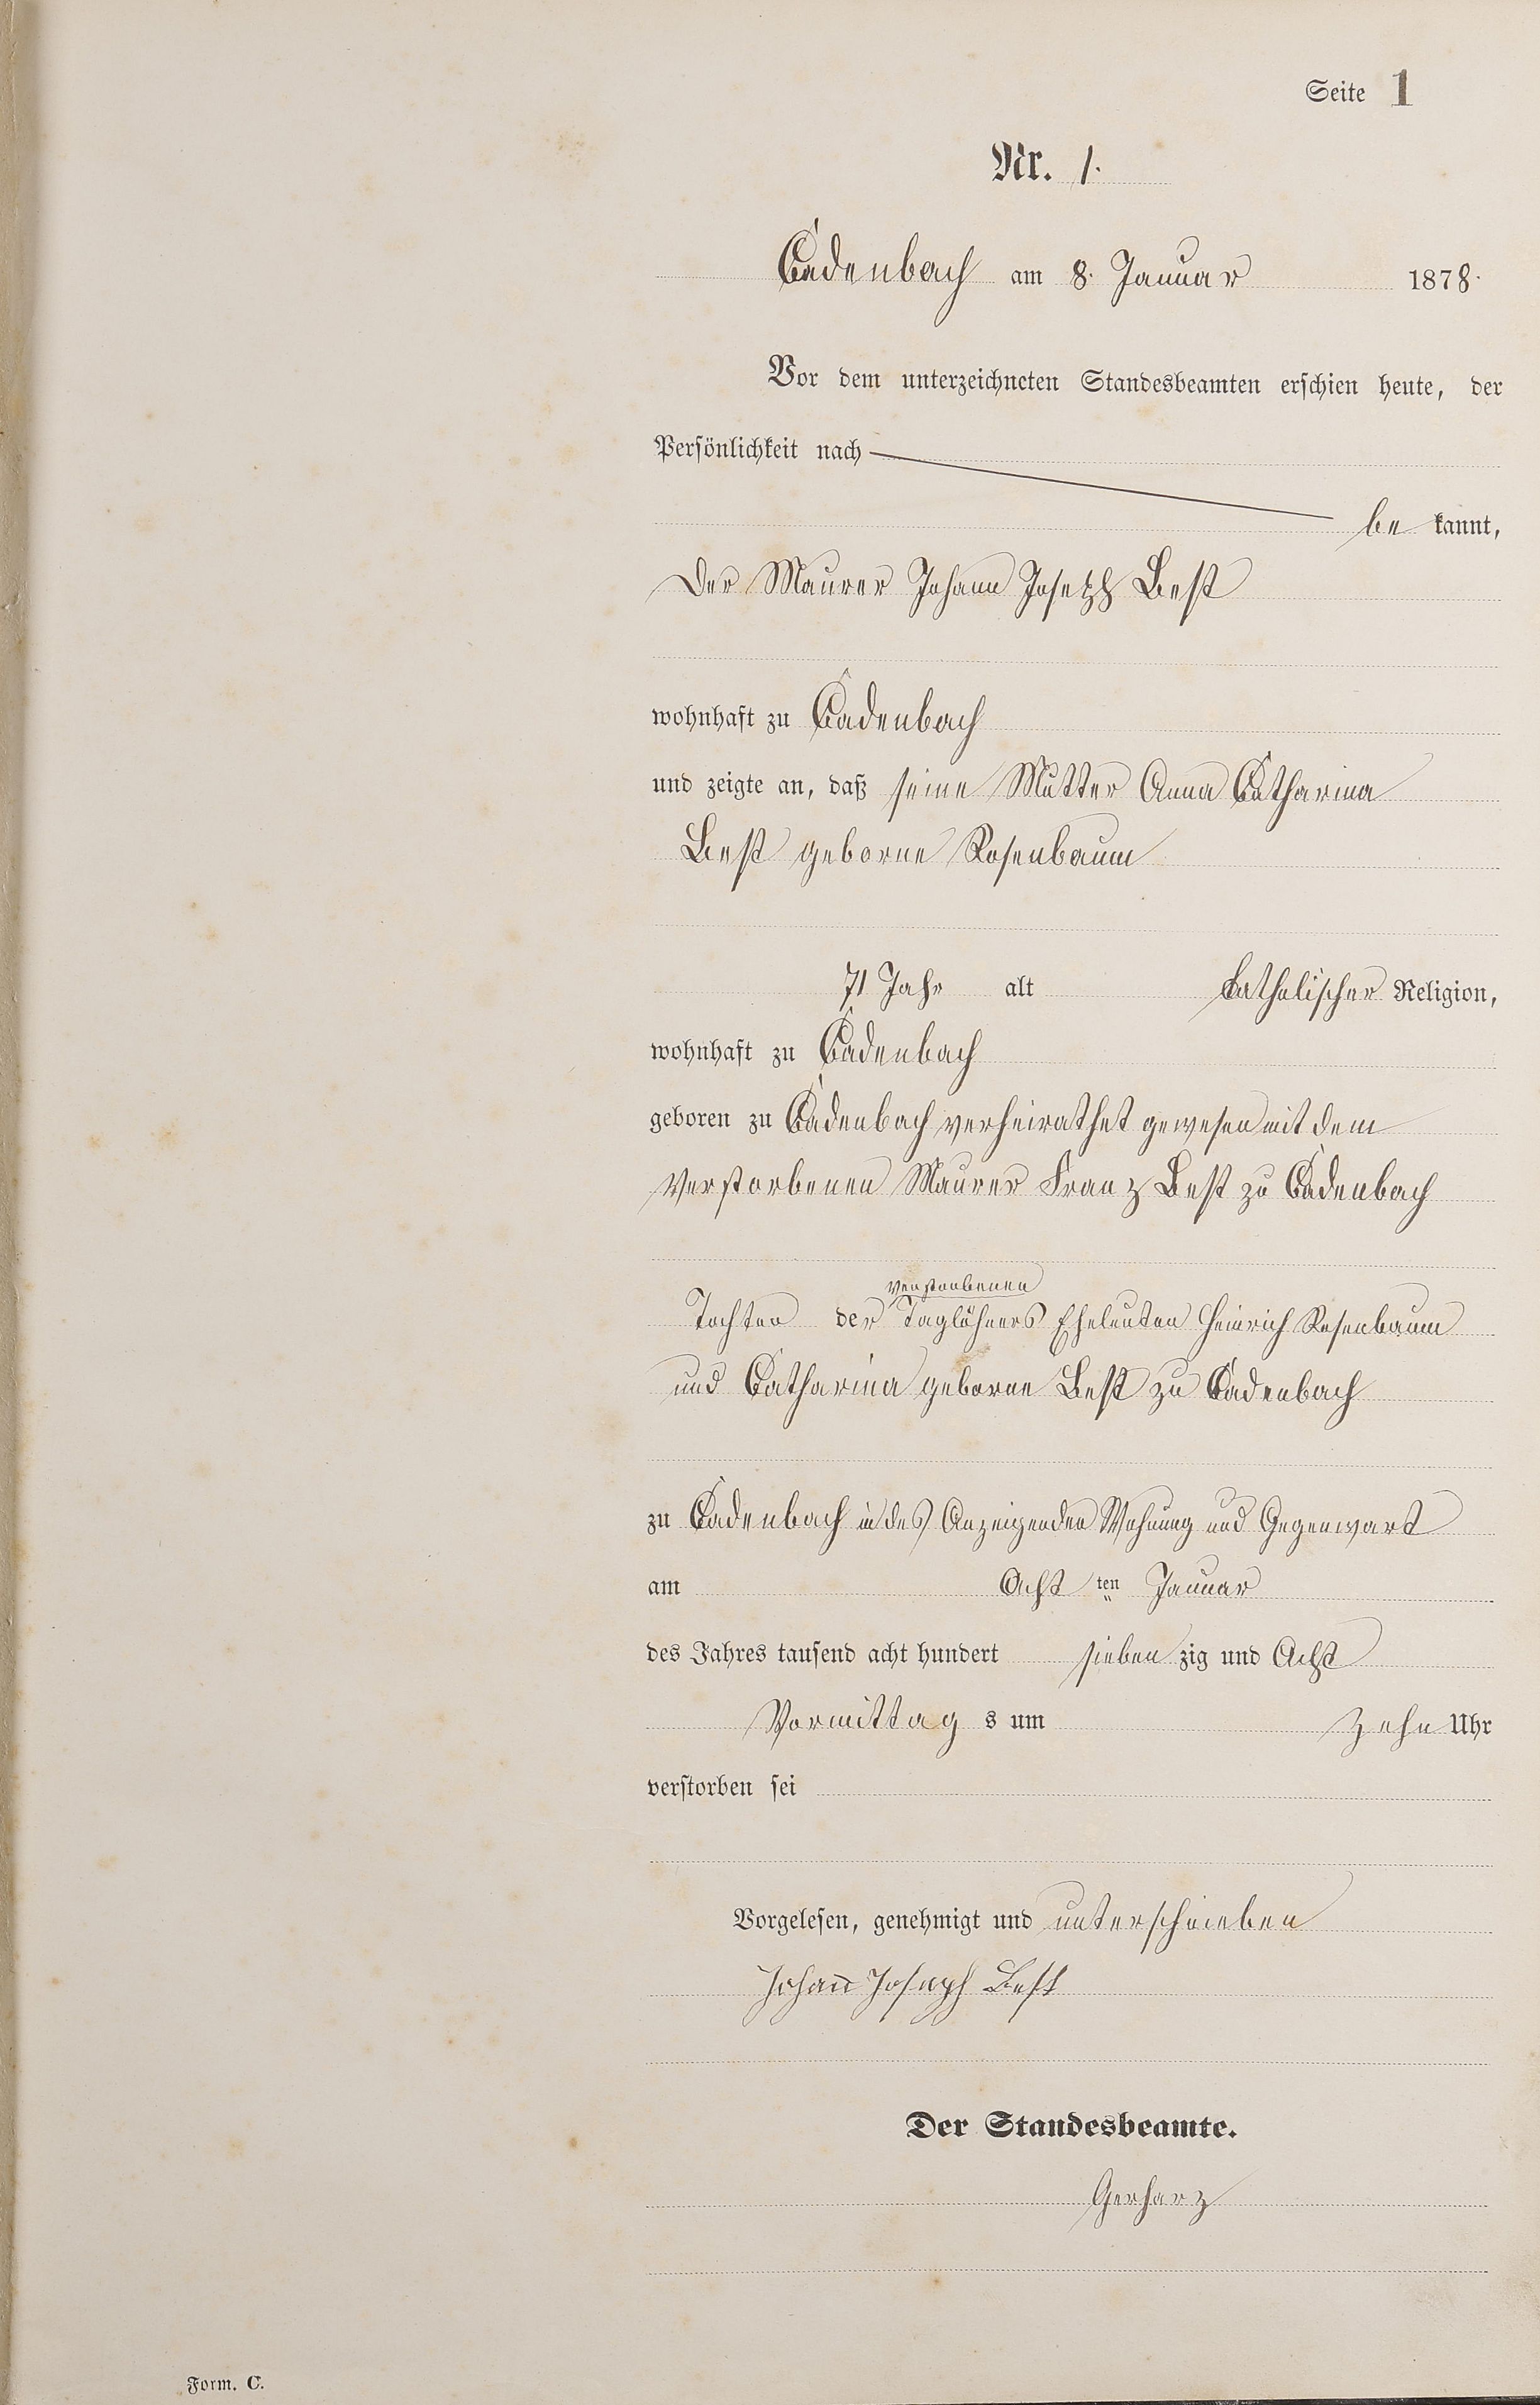 Seite 1
Nr. 1.
Cadenbach am 8. Januar 1878.
Vor dem unterzeichneten Standesbeamten erschien heute, der
Persönlichkeit nach
be kannt,
der Maurer Johann Joseph Best
wohnhaft zu Cadenbach
und zeigte an, daß seine Mutter Anna Catharina
Best geborne Rosenbaum
71 Jahr alt Catholischer Religion,
wohnhaft zu Cadenbach
geboren zu Cadenbach verheirathet gewesen mit dem
verstorbenen Maurer Franz Best zu Cadenbach
verstorbenen
Tochter der Taglöhners Eheleuten Heinrich Rosenbaum
und Catharina geborne Best zu Cadenbach
zu Cadenbach in des Anzeigenden Wohnung und Gegenwart
am Acht ten Januar
des Jahres tausend acht hundert sieben zig und Acht
Vormittag s um Zehn Uhr
verstorben sei
Vorgelesen, genehmigt und unterschrieben
Johann Joseph Best
Der Standesbeamte.
Gerharz
Form. C.